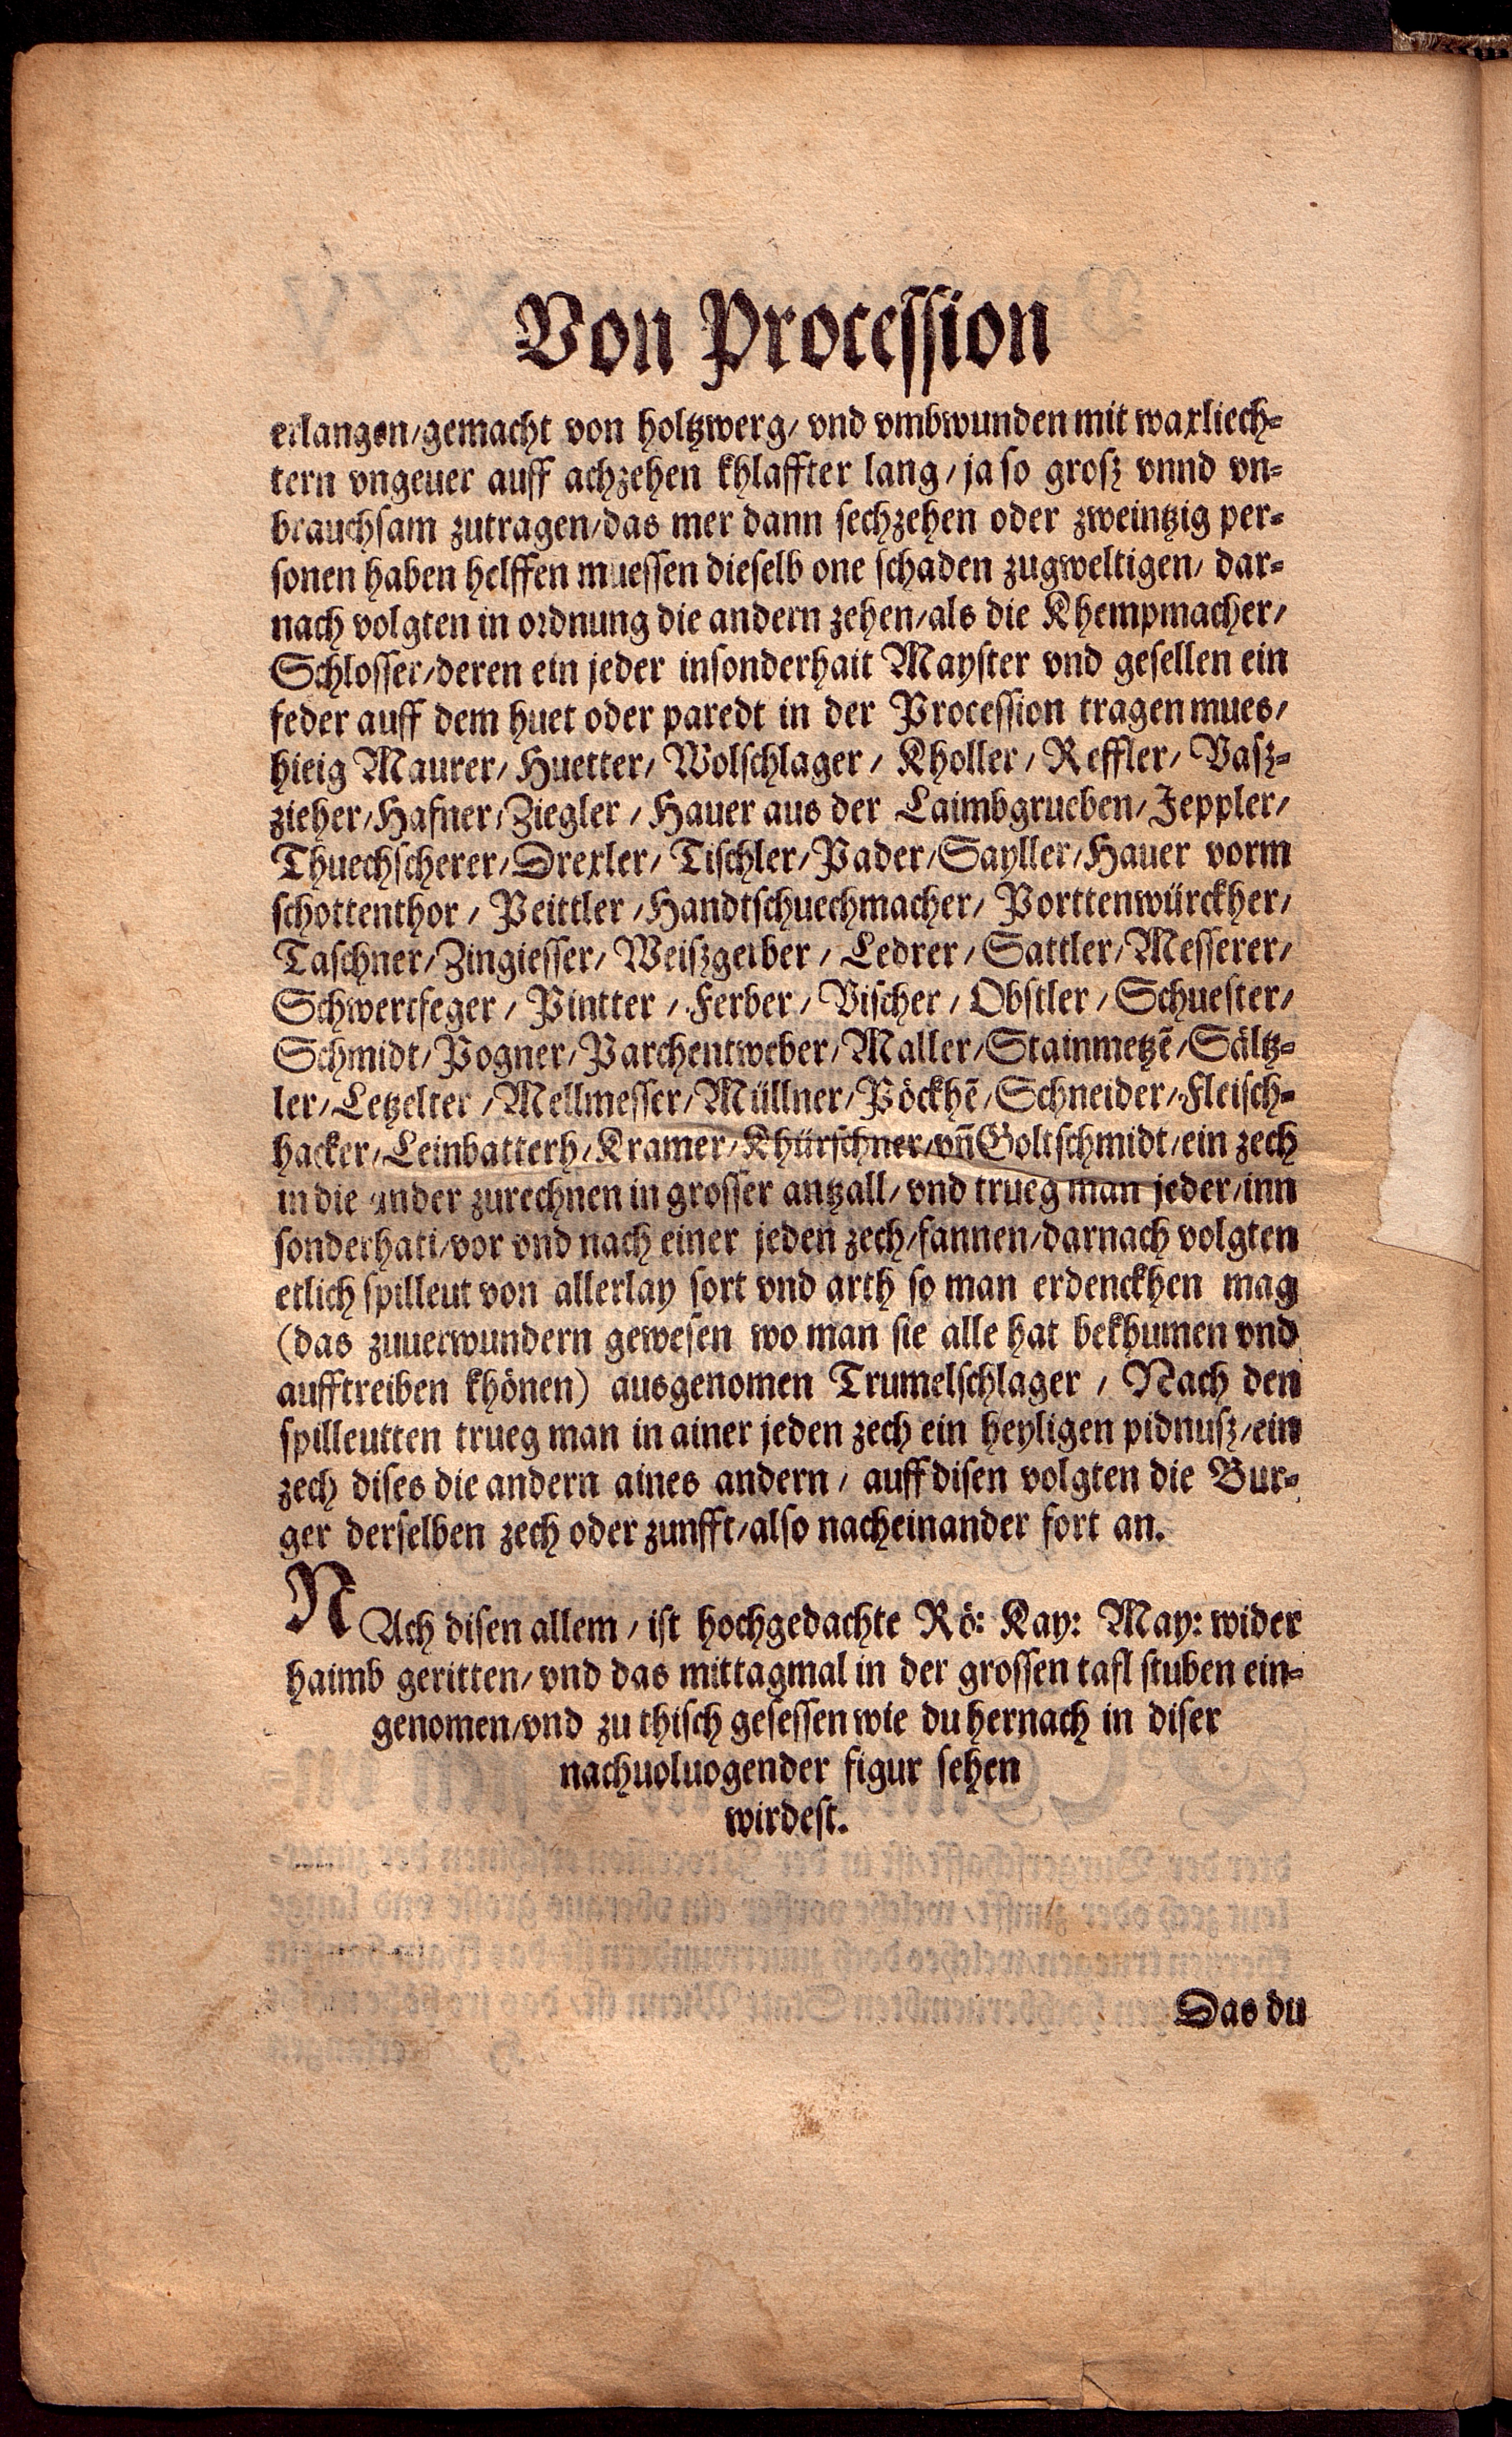 Von Procession
erlangen/gemacht von holtzwerg/ vnd vmbwunden mit waxliech-
tern vngeuer auff achzehen khlaffter lang/ ja so grosz vnnd vn-
brauchsam zutragen/das mer dann sechzehen oder zweintzig per-
sonen haben helffen muessen dieselb one schaden zugweltigen/ dar-
nach volgten in ordnung die andern zehen/als die Khempmacher/
Schlosser/deren ein jeder insonderhait Mayster vnd gesellen ein
feder auff dem huet oder paredt in der Procession tragen mues/
hieig Maurer/ Huetter/ Wolschlager/ Kholler/ Reffler/ Vasz-
zieher/Hafner/Ziegler/ Hauer aus der Laimbgrueben/Jeppler/
Thuechscherer/Drexler/ Tischler/Pader/Sayller/Hauer vorm
schottenthor/ Peittler/Handtschuechmacher/ Porttenwürckher/
Taschner/Zingiesser/ Weiszgerber/ Ledrer/ Sattler/Messerer/
Schwertfeger/ Pintter/ Ferber/ Vischer/ Obstler/ Schuester/
Schmidt/Pogner/Parchentweber/Maller/Stainmetzẽ/Sältz-
ler/Letzelter/Mellmesser/Müllner/Pöckhẽ/Schneider/Fleisch-
hacker/Leinbatterh/Kramer/Khürschner/vñ Goltschmidt/ein zech
in die ander zurechnen in grosser antzall/ vnd trueg man jeder/inn
sonderhati/vor vnd nach einer jeden zech/fannen/darnach volgten
etlich spilleut von allerlay sort vnd arth so man erdenckhen mag
(das zuuerwundern gewesen wo man sie alle hat bekhumen vnd
aufftreiben khönen) ausgenomen Trumelschlager/ Nach den
spilleutten trueg man in ainer jeden zech ein heyligen pidnusz/ein
zech dises die andern aines andern/ auff disen volgten die Bur-
ger derselben zech oder zunfft/also nacheinander fort an.
NAch disen allem/ ist hochgedachte Rö: Kay: May: wider
haimb geritten/ vnd das mittagmal in der grossen tafl stuben ein-
genomen/vnd zu thisch gesessen wie du hernach in diser
nachuoluogender figur sehen
wirdest.
Das du